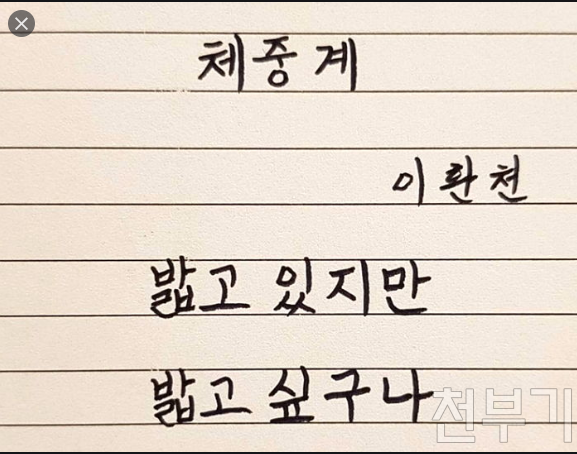 체중계
이환천
밟고 있지만
밟고 싶구나
천부기